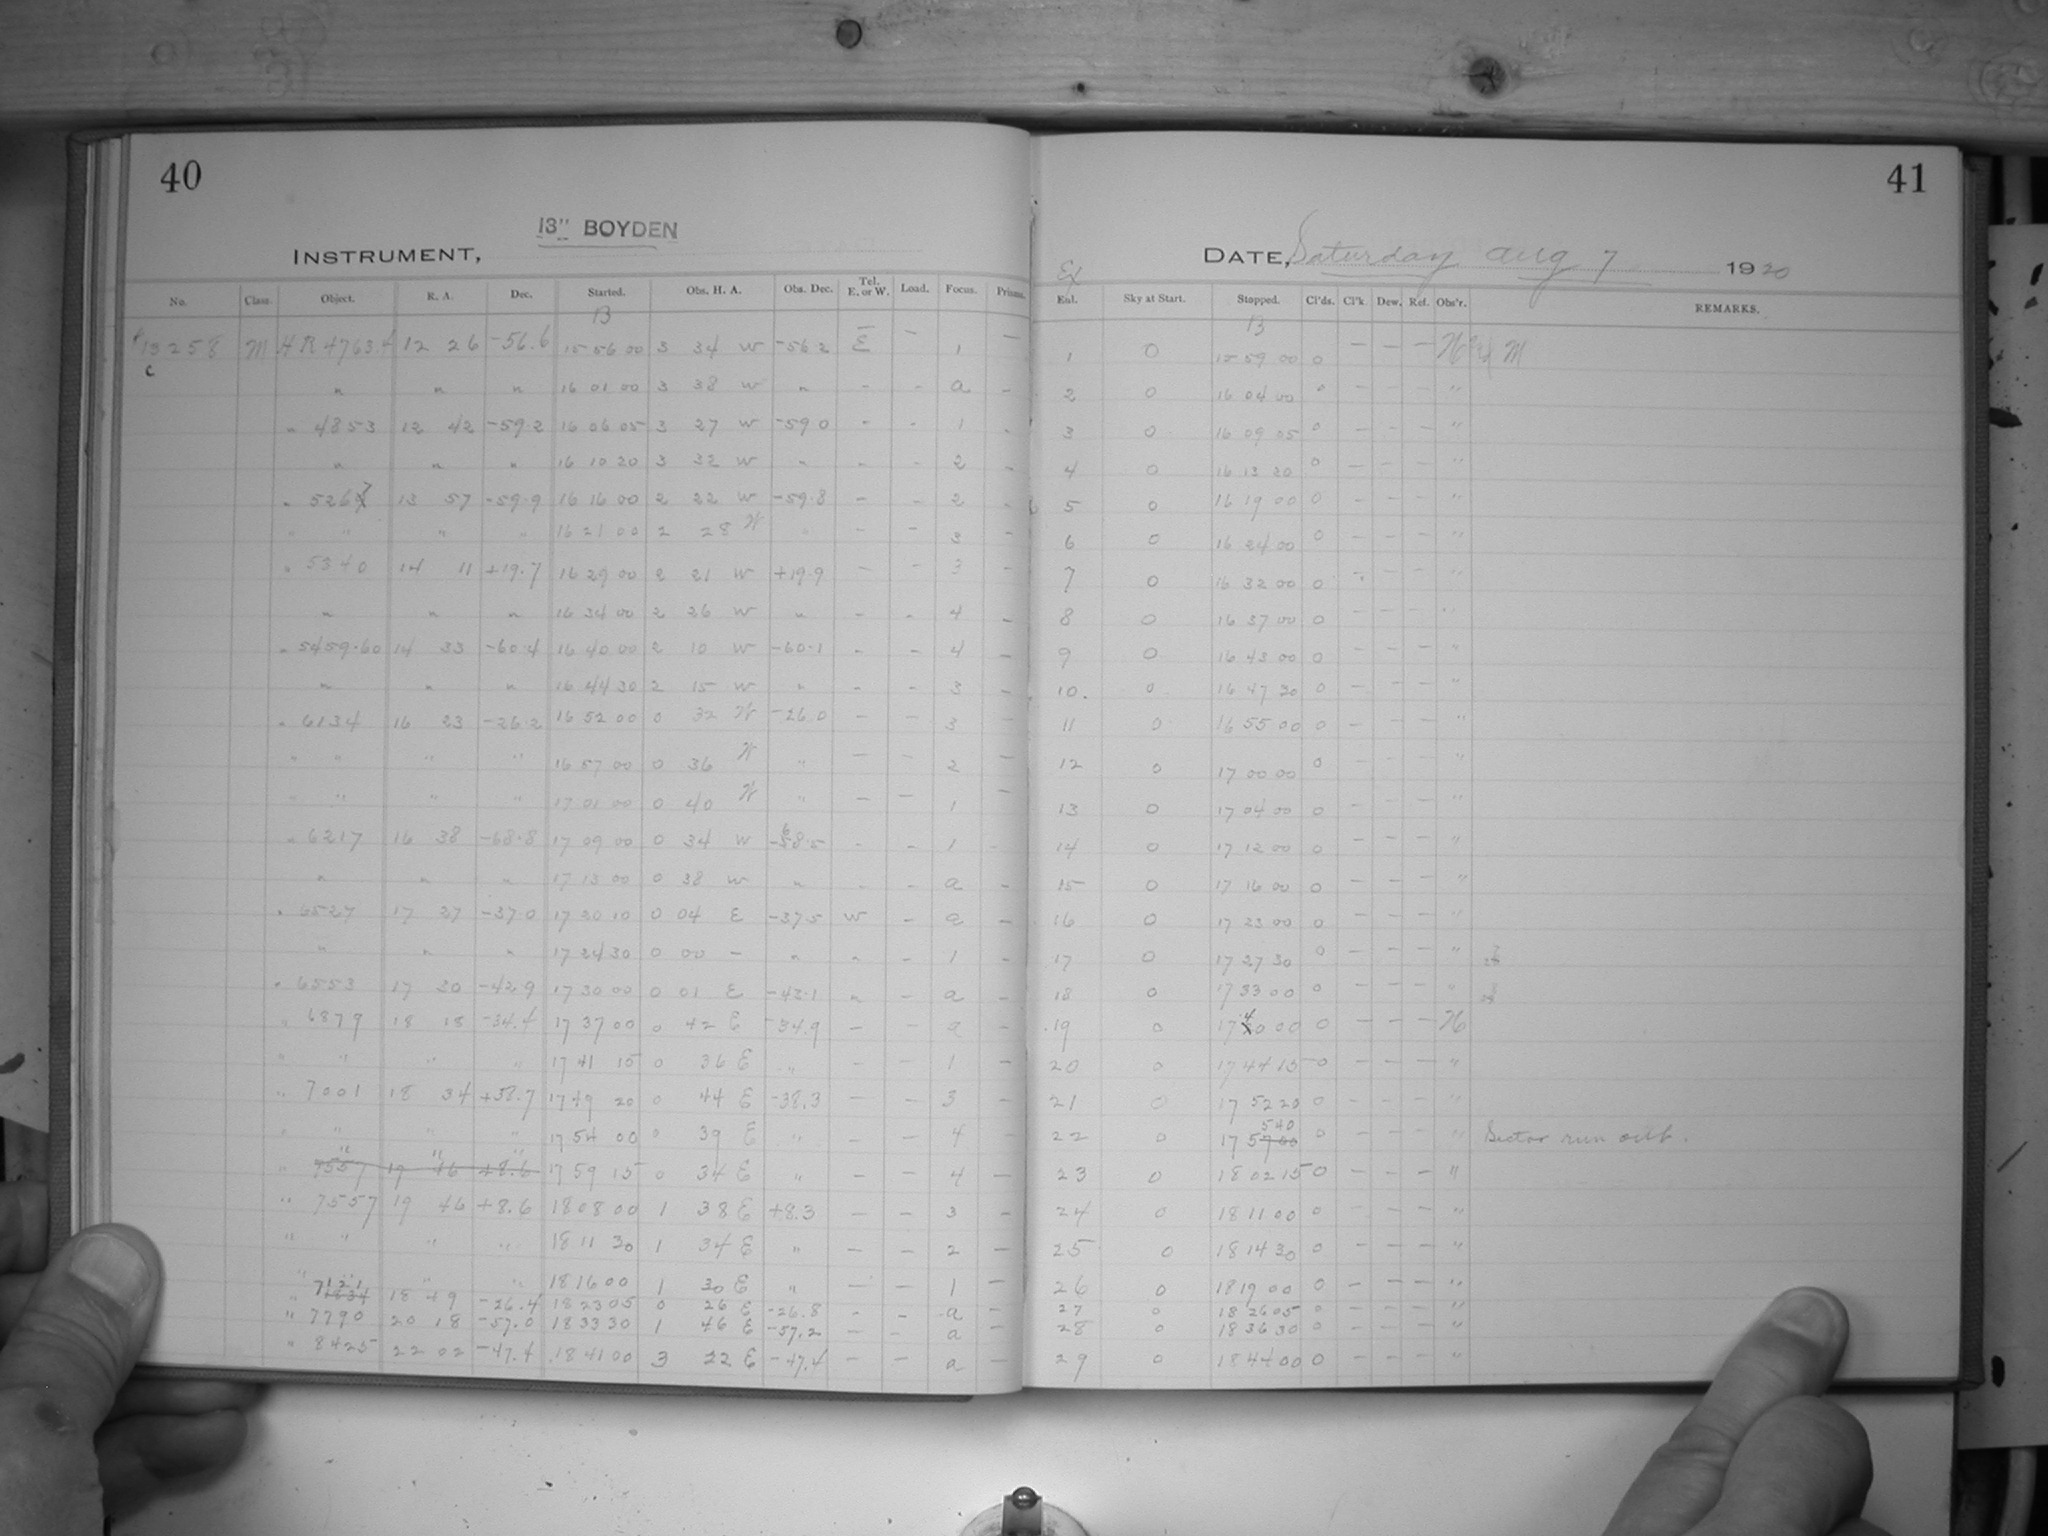 40
13" BOYDEN
INSTRUMENT,
No. Class. Object. R. A. Dec. Started. Obs. H. A. Obs. Dec. Tel. E. or W. Load. Focus. Prisms.
13
13258 M HR 4763.4 12 26 -56.6 15 56 00 3 34 W -56 2 E — 1 —
c
" " " 16 01 00 3 38 W " - - a -
" 4853 12 42 -59.2 16 06 05 3 27 W -59 0 - - 1 -
" " " 16 10 20 3 32 W " - - 2 -
" 5267 13 57 -59.9 16 16 00 2 22 W -59.8 - - 2 -
" " " " 16 21 00 2 28 W " - - 3 -
" 5340 14 11 +19.7 16 29 00 2 21 W +19.9 - - 3 -
" " " 16 34 00 2 26 W " - - 4 -
" 5459.60 14 33 -60.4 16 40 00 2 10 W -60.1 - - 4 -
" " " 16 44 30 2 15 W " - - 3 -
" 6134 16 23 -26.2 16 52 00 0 32 W -26.0 - - 3 -
" " " " 16 57 00 0 36 W " - - 2 -
" " " " 17 01 00 0 40 W " - - 1 -
" 6217 16 38 -68.8 17 09 00 0 34 W -68.5 - - 1 -
" " " 17 13 00 0 38 W " - - a -
" 6527 17 27 -37.0 17 20 10 0 04 E -37.5 W - a -
" " " 17 24 30 0 00 - " " - 1 -
" 6553 17 30 -42.9 17 30 00 0 01 E -43.1 " - a -
" 6879 18 18 -34.4 17 37 00 0 42 E -34.9 - - a -
" " " " 17 41 15 0 36 E " - - 1 -
" 7001 18 34 +38.7 17 49 20 0 44 E -38.3 - - 3 -
" " " " 17 54 00 0 39 E " - - 4 -
" " "
" 7557 19 46 +8.6 17 59 15 0 34 E " - - 4 -
" 7557 19 46 +8.6 18 08 00 1 38 E +8.3 - - 3 -
" " " " 18 11 30 1 34 E " - - 2 -
" " " " 18 16 00 1 30 E " - - 1 -
" 7121 18 49 -26.4 18 23 05 0 26 E -26.8 - - a -
" 7790 20 18 -57.0 18 33 30 1 46 E -57.2 - - a -
" 8425 22 02 -47.4 18 41 00 3 22 E -47.4 - - a -
41
DATE, Saturday Aug 7 1920
Ex
Enl. Sky at Start. Stopped. Cl'ds. Cl'k. Dew. Ref. Obs'r. REMARKS.
13
1 0 15 59 00 0 - - - M
2 0 16 04 00 0 - - - "
3 0 16 09 05 0 - - - "
4 0 16 13 20 0 - - - "
5 0 16 19 00 0 - - - "
6 0 16 24 00 0 - - - "
7 0 16 32 00 0 - - - "
8 0 16 37 00 0 - - - "
9 0 16 43 00 0 - - - "
10. 0 16 47 30 0 - - - "
11 0 16 55 00 0 - - - "
12 0 17 00 00 0 - - - "
13 0 17 04 00 0 - - - "
14 0 17 12 00 0 - - - "
15 0 17 16 00 0 - - - "
16 0 17 23 00 0 - - - "
17 0 17 27 30 0 - - - "
18 0 17 33 00 0 - - - "
19 0 17 40 00 0 - - -
20 0 17 44 15 0 - - - "
21 0 17 52 20 0 - - - "
540
22 0 17 57 00 0 - - - " Sector run out.
23 0 18 02 15 0 - - - "
24 0 18 11 00 0 - - - "
25 0 18 14 30 0 - - - "
26 0 18 19 00 0 - - - "
27 0 18 26 05 0 - - - "
28 0 18 36 30 0 - - - "
29 0 18 44 00 0 - - - "